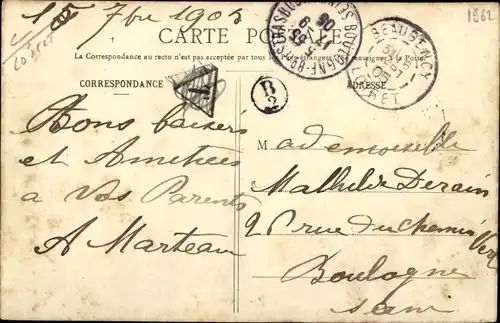 15 7bre 1905
1962
CARTE POSTALE
La Correspondance au recto n'est pas acceptée par tous les Pays étrangers. (Se renseigner à la Poste)
CORRESPONDANCE
ADRESSE
BEAUGENCY
LOIRET
T
B
2
Bons baisers
et Amitiées
à Vos Parents
A Marteau
Mademoiselle
Mathilde Derain
2 rue du chemin Vert
Boulogne
Seine